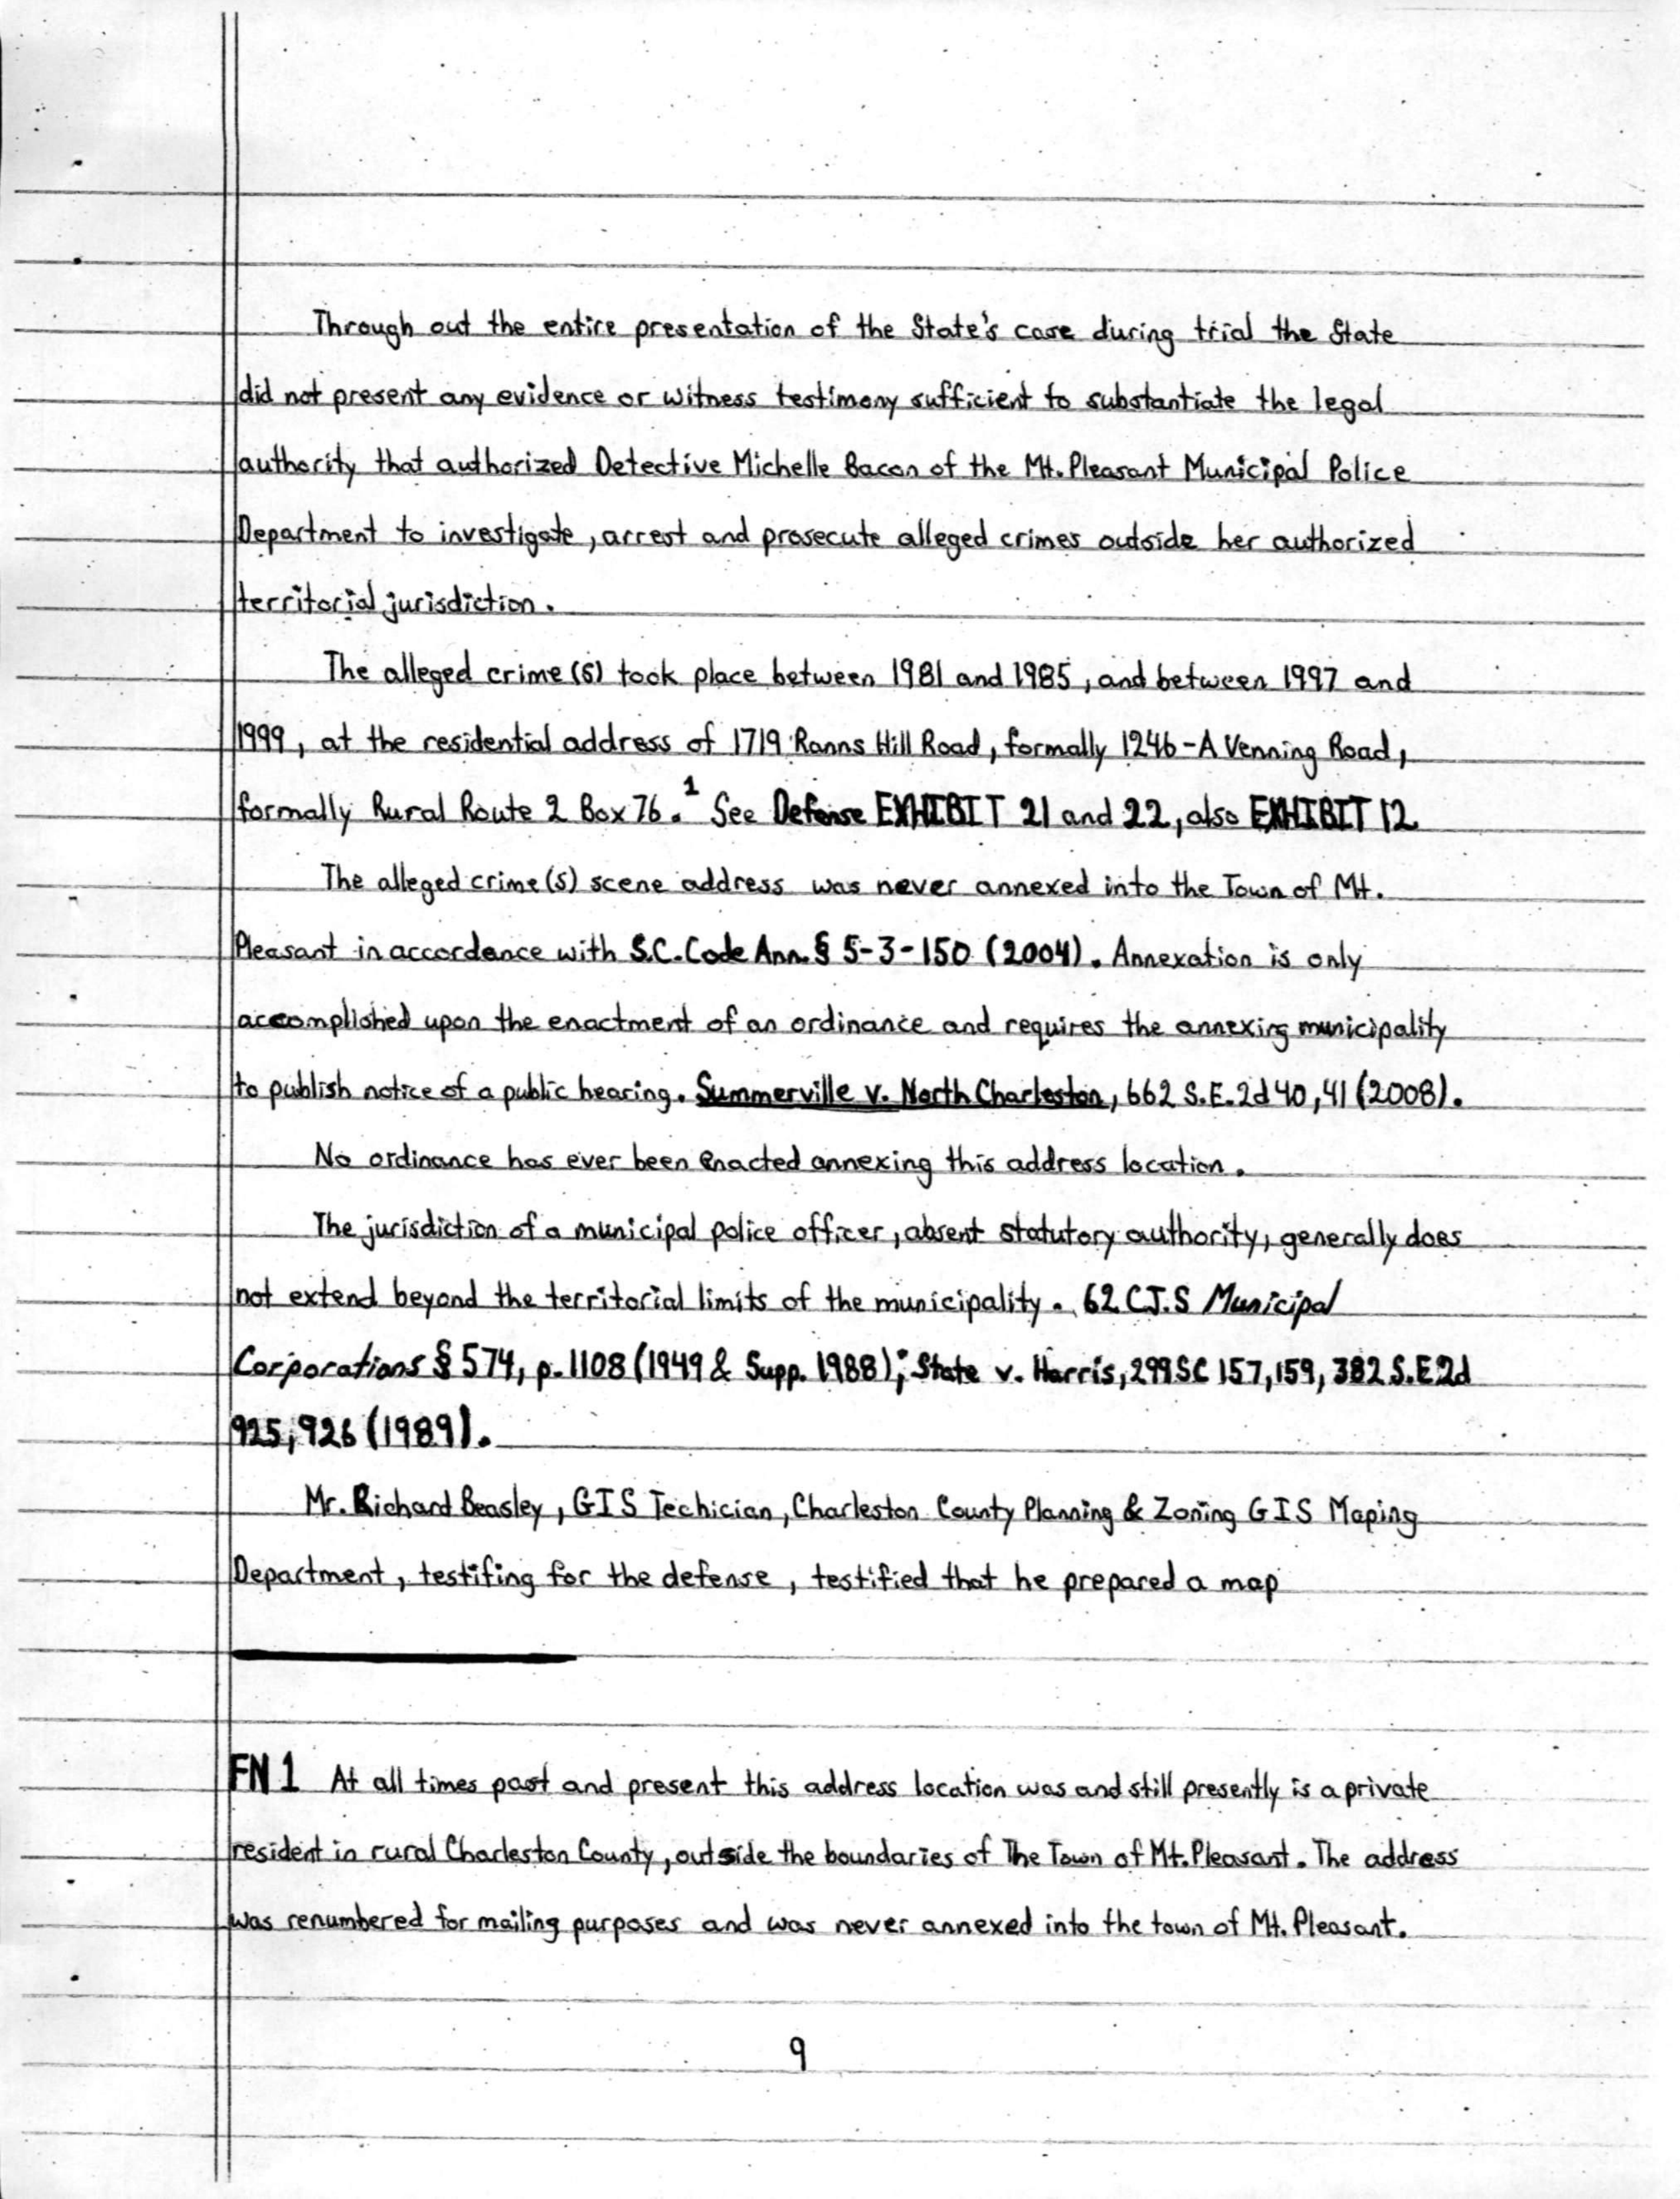 Through out the entire presentation of the State's case during trial the State
did not present any evidence or witness testimony sufficient to substantiate the legal
authority that authorized Detective Michelle Bacon of the Mt. Pleasant Municipal Police
Department to investigate, arrest and prosecute alleged crimes outside her authorized
territorial jurisdiction.
The alleged crime(s) took place between 1981 and 1985, and between 1997 and
1999, at the residential address of 1719 Ranns Hill Road, formally 1246-A Venning Road,
formally Rural Route 2 Box 76.1 See Defense EXHIBIT 21 and 22, also EXHIBIT 12
The alleged crime(s) scene address was never annexed into the Town of Mt.
Pleasant in accordance with S.C. Code Ann. § 5-3-150 (2004). Annexation is only
accomplished upon the enactment of an ordinance and requires the annexing municipality
to publish notice of a public hearing. Summerville v. North Charleston, 662 S.E.2d 40, 41 (2008).
No ordinance has ever been enacted annexing this address location.
The jurisdiction of a municipal police officer, absent statutory authority, generally does
not extend beyond the territorial limits of the municipality. 62 C.J.S Municipal
Corporations § 574, p. 1108 (1949 & Supp. 1988); State v. Harris, 299 SC 157, 159, 382 S.E.2d
925, 926 (1989).
Mr. Richard Beasley, GIS Techician, Charleston County Planning & Zoning GIS Maping
Department, testifing for the defense, testified that he prepared a map
FN 1 At all times past and present this address location was and still presently is a private
resident in rural Charleston County, outside the boundaries of The Town of Mt. Pleasant. The address
was renumbered for mailing purposes and was never annexed into the town of Mt. Pleasant.
9